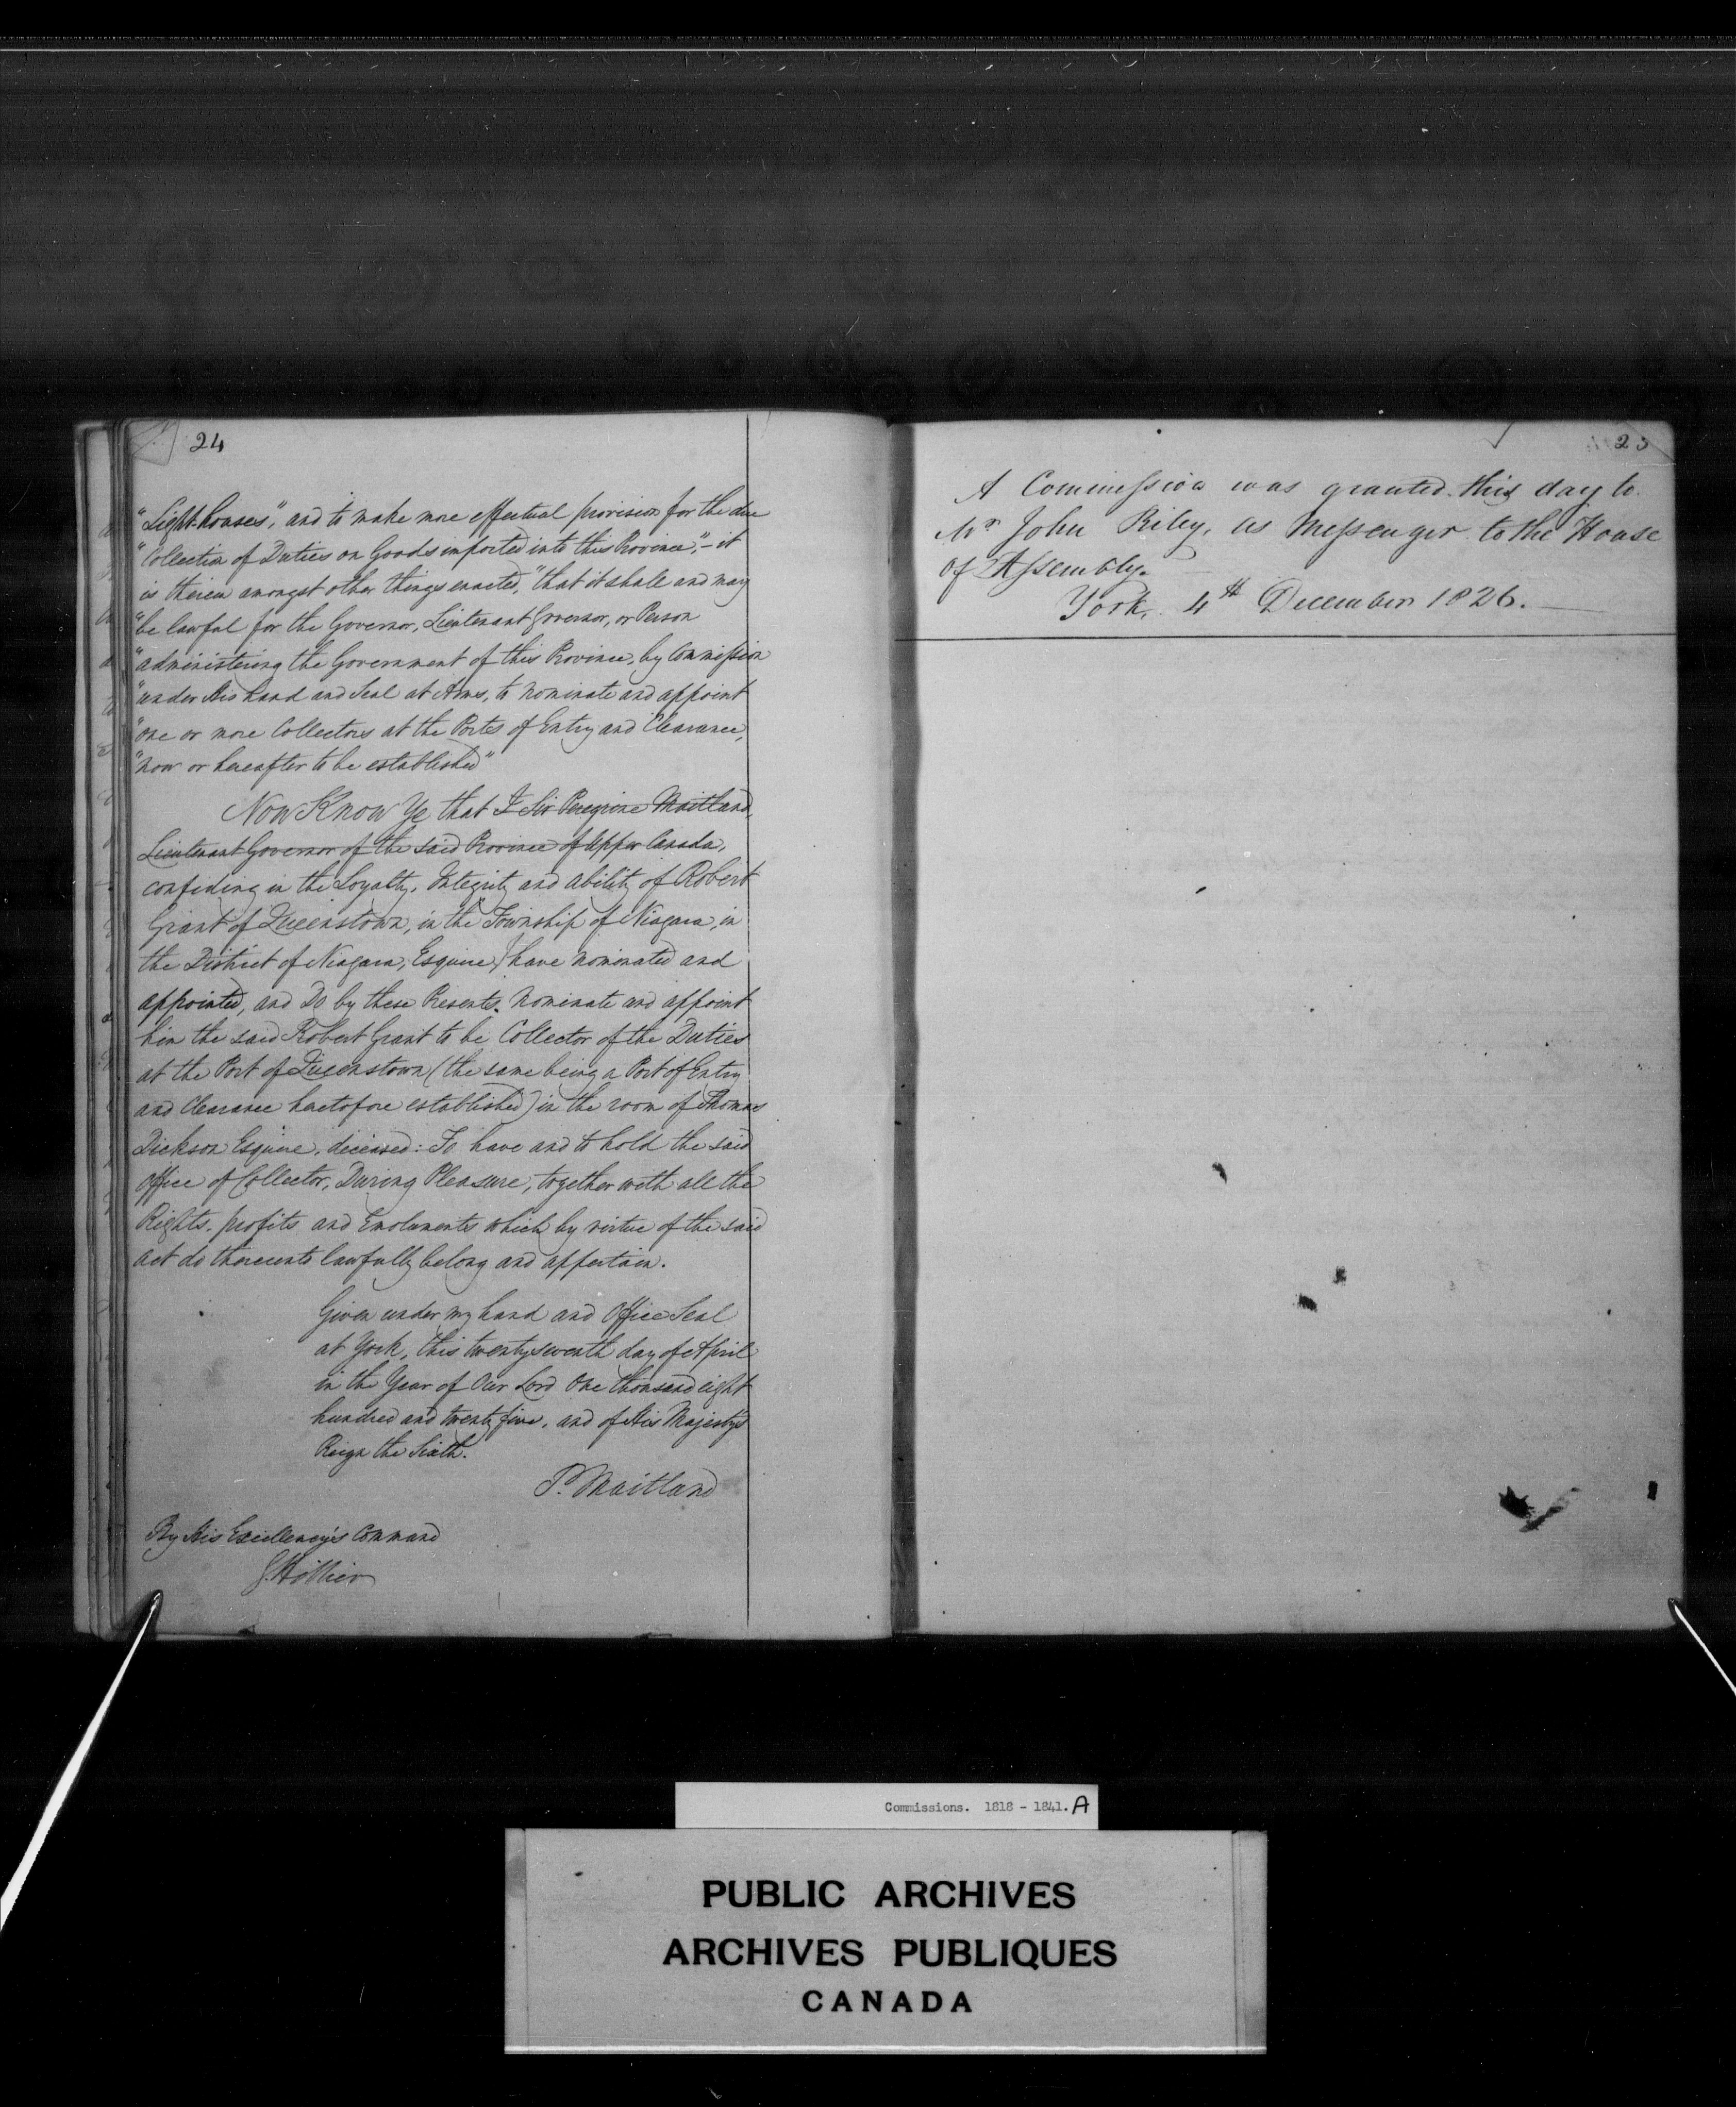 24
"Light-houses", and to make more effectual provision for the due
"Collection of Duties on Goods imported into this Province," - it
is therein amongst other things enacted, "that it shall and may
"be lawful for the Governor, Lieutenant Governor, or Person
"administering the Government of this Province, by Commission
"under His hand and Seal at Arms, to nominate and appoint
"one or more Collectors at the Ports of Entry and Clearance,
"now or hereafter to be established"
Now Know Ye that I Sir Peregrine Maitland,
Lieutenant Governor of the said Province of Upper Canada,
confiding in the Loyalty, Integrity and Ability of Robert
Grant of Queenstown, in the Township of Niagara, in
the District of Niagara, Esquire, have nominated and
appointed, and Do by these Presents. nominate and appoint
him the said Robert Grant to be Collector of the Duties
at the Port of Queenstown (the same being a Port of Entry
and Clearance heretofore established) in the room of Thomas
Dickson Esquire, deceased: To have and to hold the said
Office of Collector, During Pleasure, together with all the
Rights, profits and Emoluments which by virtue of the said
act do thereunto lawfully belong and appertain.
Given under my hand and Office Seal
at York, this twenty seventh day of April
in the Year of Our Lord One thousand eight
hundred and twenty five, and of His Majesty's
Reign the Sixth.
P. Maitland
By His Excellency's Command
G. Hillier
A Commission was granted this day to
Mr John Riley, as Messenger to the House
of Assembly.
York, 4th December 1826.
Commissions. 1818 - 1841. A
PUBLIC ARCHIVES
ARCHIVES PUBLIQUES
CANADA